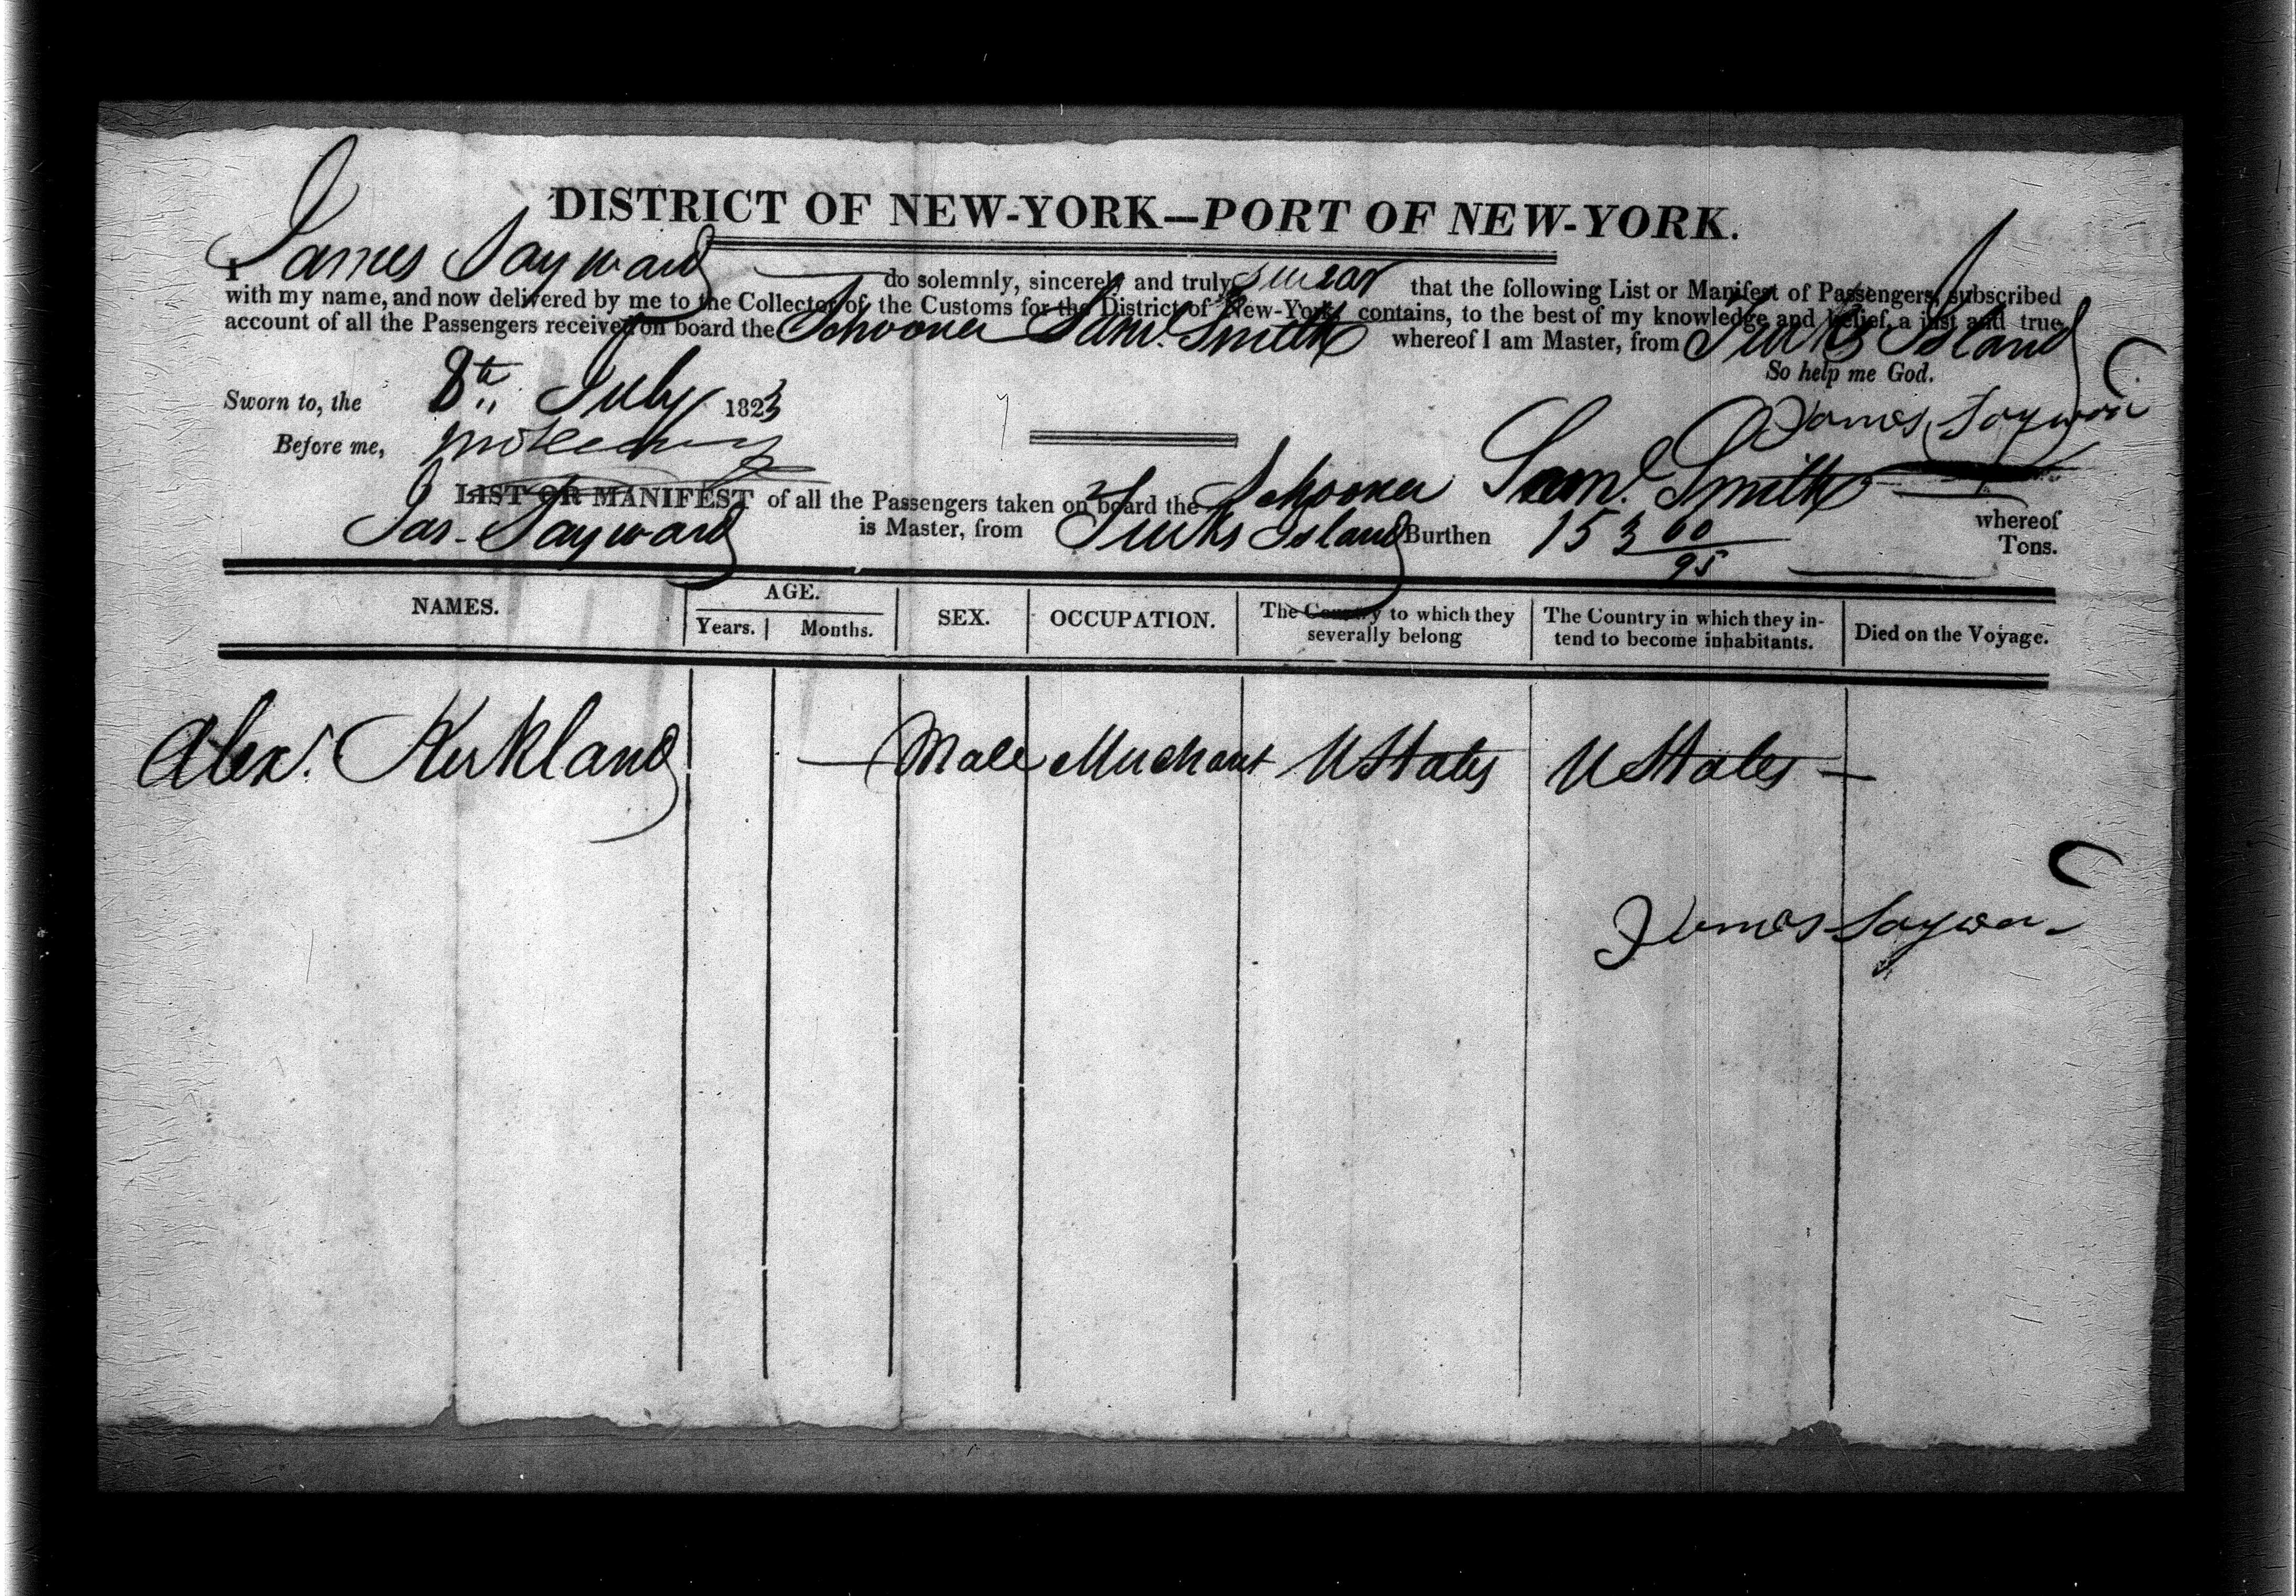 DISTRICT OF NEW-YORK—PORT OF NEW-YORK.
I James Sayward do solemnly, sincerely and truly swear that the following List or Manifest of Passengers, subscribed
with my name, and now delivered by me to the Collector of the Customs for the District of New-York, contains, to the best of my knowledge and belief, a just and true
account of all the Passengers received on board the Schooner Saml. Smith whereof I am Master, from Turks Island
So help me God.
Sworn to, the 8th July 1823
James Saywa
Before me,
LIST OR MANIFEST of all the Passengers taken on board the Schooner Saml. Smith whereof
Jas. Sayward is Master, from Turks Island Burthen 153 60/95 Tons.
NAMES. AGE. SEX. OCCUPATION. The Country to which they severally belong The Country in which they in-tend to become inhabitants. Died on the Voyage.
Years. Months.
Alexr. Kirkland — Male Merchant U States U States —
James Saywa